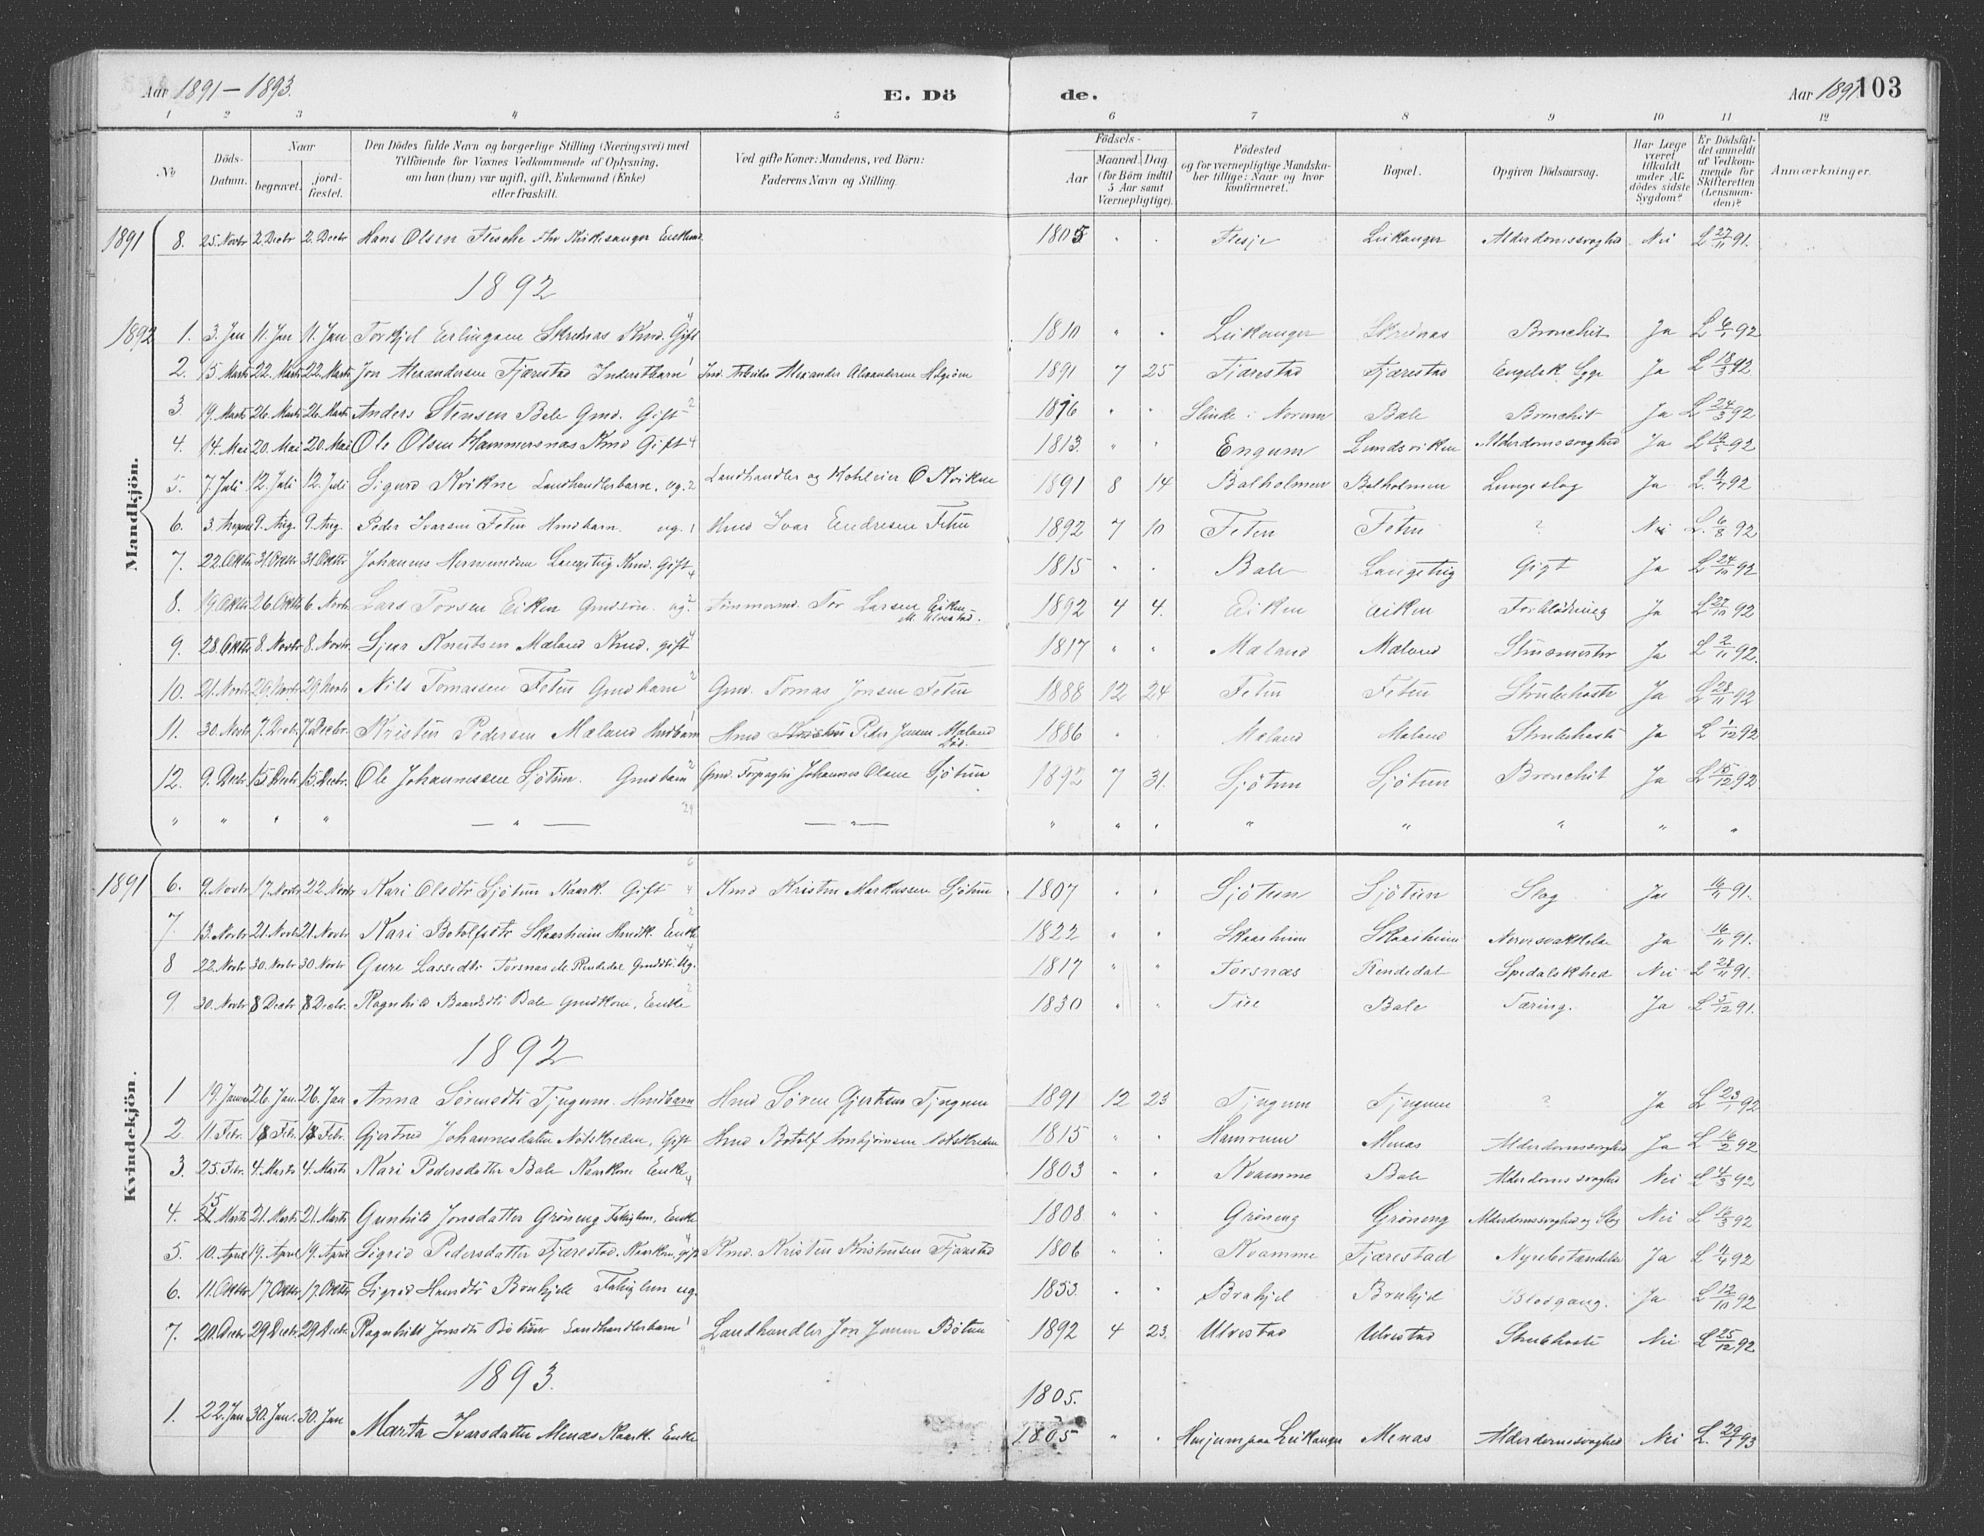 Aar 1891 - 1893.
E. Dö de.
Aar 1891 103
1 2 3 4 5 6 7 8 9 10 11 12
No
Döds-Datum.
Naar
begravet.
jord-fæstet.
Den Dödes fulde Navn og borgerlige Stilling (Næringsvei) med
Tilföiende for Voxnes Vedkommende af Oplysning,
om han (hun) var ugift, gift, Enkemand (Enke)
eller fraskilt.
Ved gifte Koner: Mandens, ved Börn:
Faderens Navn og Stilling.
Födsels-
Aar
Maaned. Dag
(for Börn indtil
5 Aar samt
Værnepligtige).
Födested
og for værnepligtige Mandska-
ber tillige: Naar og hvor
konfirmeret.
Bopæl.
Opgiven Dödsaarsag.
Har Læge
været
tilkaldt
under Af-
dödes sidste
Sygdom?
Er Dödsfal-
det anmeldt
af Vedkom-
mende for
Skifteretten
(Lensman-
den)?
Anmærkninger.
Mandkjön.
1891 8. 25. Novbr 2. Decbr 2. Decbr Hans Olsen Flesche 1805 " " Flesje Leikanger Alderdomssvaghed Nei L 27/11 91.
1892
1892 1. 3. Jan 11. Jan 11. Jan Torkjel Erlingsen Skrednæs Kmd. Gift 1810 " " Leikanger Skrednæs Bronchit Ja L 6/1 92
2. 15 Marts 22. Marts 22. Marts Jon Alexandersen Fjærestad Inderstbarn Ind. Arbeider Alexander Alexandersen 1891 7 25 Fjærestad Fjærestad Engelsk Syge Ja L 18/3 92
3. 19. Marts 26. Marts 26. Marts Anders Stensen Bale Gmd. Gift 1816 " " Slinde i Norum Bale Bronchit Ja L 24/3 92
4. 14. Mai 20. Mai 20. Mai Ole Olsen Hammersnæs Kmd Gift 1813 " " Engum Lundsviken Alderdomssvaghed Ja L 92
5. 7. Juli 12. Juli 12. Juli Sigurd Kvikne Landhandlerbarn, ug. Landhandler og O Kvikne 1891 8 14 Balholmen Balholmen Lungeslag Ja L. 92
6. 3. August 9. Aug. 9. Aug. Peder Ivarsen Feten Hmdbarn ug. Hmd Ivar Endresen Feten 1892 7 10 Feten Feten ? Nei L. 6/8 92
7. 22. Oktbr 31. Oktbr 31. Oktbr Johannes Hermundsen Langeteig Kmd. Gift 1815 " " Bale Langeteig Gigt Ja L 24/10 92
8. 19. Oktbr 26. Oktbr 6. Novbr. Lars Torsen Eiken Gmdsön ug. Tømmermd. Tor Larsen Eiken 1892 4 4. Eiken Eiken Forblödning Ja L 27/10 92
9. 28. Oktbr 8. Novbr 8. Novbr. Sjur Knutsen Mæland Kmd. gift 1817 " " Mæland Mæland Ja L 2/11 92.
10. 21. Novbr 29. Novbr 29. Novbr Nils Tomassen Feten Gmdbarn Gmd. Tomas Jonsen Feten 1888 12 24 Feten Feten Strubehoste Ja L 28/11 92
11. 30. Novbr 7. Decbr 7. Decbr. Kristen Pedersen Mæland Hmdbarn Hmd Peder Jensen Mæland 1886 " " Mæland Mæland Strubehoste Ja L 1/12 92
12. 9. Decbr 15. Decbr 15. Decbr. Ole Johannessen Sjötun. Gmdbarn Gmd. Forpagter Johannes Olsen Sjötun 1892 7 31. Sjötun Sjötun Bronchit Ja L 15/12 92.
" " " " — " — — " — " " " " " " " "
Kvindekjön.
1891 6. 9. Novbr 17. Novbr 22. Novbr Kari Olsdtr Sjötun Kaark. Gift Kmd Kristen Markussen Sjötun 1807 " " Sjötun Sjötun Slag Ja 16/11 91.
7. 13. Novbr 21. Novbr 21. Novbr Kari Botolfsdtr Skaasheim Hmdk. Enke 1822 " " Skaasheim Skaasheim Nervesvækkelse Ja 16/11 91.
8 22. Novbr 30. Novbr 30 Novbr Gure Lassedtr Torsnæs M. Rendedal ug. 1817 " " Torsnæs Rendedal Spedalskhed Nei L 28/11 91.
9 30. Novbr 8 Decbr 8 Decbr. Ragnhild Baardsdtr Bale Gmdkone, Enke 1830 " " Bale Tæring. Ja L 5/12 91.
1892
1 19. Januar 26. Jan. 26. Jan Anna Sörensdtr Tjugum. Hmdbarn Hmd Sören Gjertsen Tjugum 1891 12 23 Tjugum Tjugum ? Ja L 23/1 92
2. 11. Febr. 18. Febr. 18. Febr. Gjertrud Johannesdatter Nötskreden, Gift Hmd Botolf Arnbjörnsen Nötskreden 1815 " " Hamrum Menæs Alderdomssvaghed Ja L 16/2 92
3. 25. Febr. 4. Marts 4. Marts Kari Pedersdatter Bale Kaarkone Enke 1803 " " Kvamme Bale Alderdomssvaghed Nei L 4/3 92
4. 15 Marts 21. Marts 21. Marts Gunhild Jonsdatter Gröneng Fattiglem, Enke 1808. " " Gröneng Gröneng Alderdomssvaghed og Slag Nei L 92
5. 10. April 19. April 19. April Sigrid Pedersdatter Fjærestad. Kaarkone, gift Kmd. Kristen Kristensen Fjærestad 1806 " " Kvamme Fjærestad Nyrebetændelse Ja L 92
6. 11. Oktbr 17. Oktbr 17. Oktbr. Sigrid Fattiglem ug. 1853. " " Blodgang. Ja L 12/10 92
7. 20. Decbr 29 Decbr 29. Decbr Ragnhild Jonsdtr Bötun Landhandlerbarn Landhandler Jon Jensen Bötun 1892 4 23. Ulvestad Ulvestad Strubehoste Nei L 25/12 92
1893.
1805.
1. 22. Jan 30. Jan. 30. Jan Marita Ivarsdatter Menæs Kaark. Enke 1805 " " Husjum paa Leikanger Menæs Alderdomssvaghed Nei L. 29/1 93